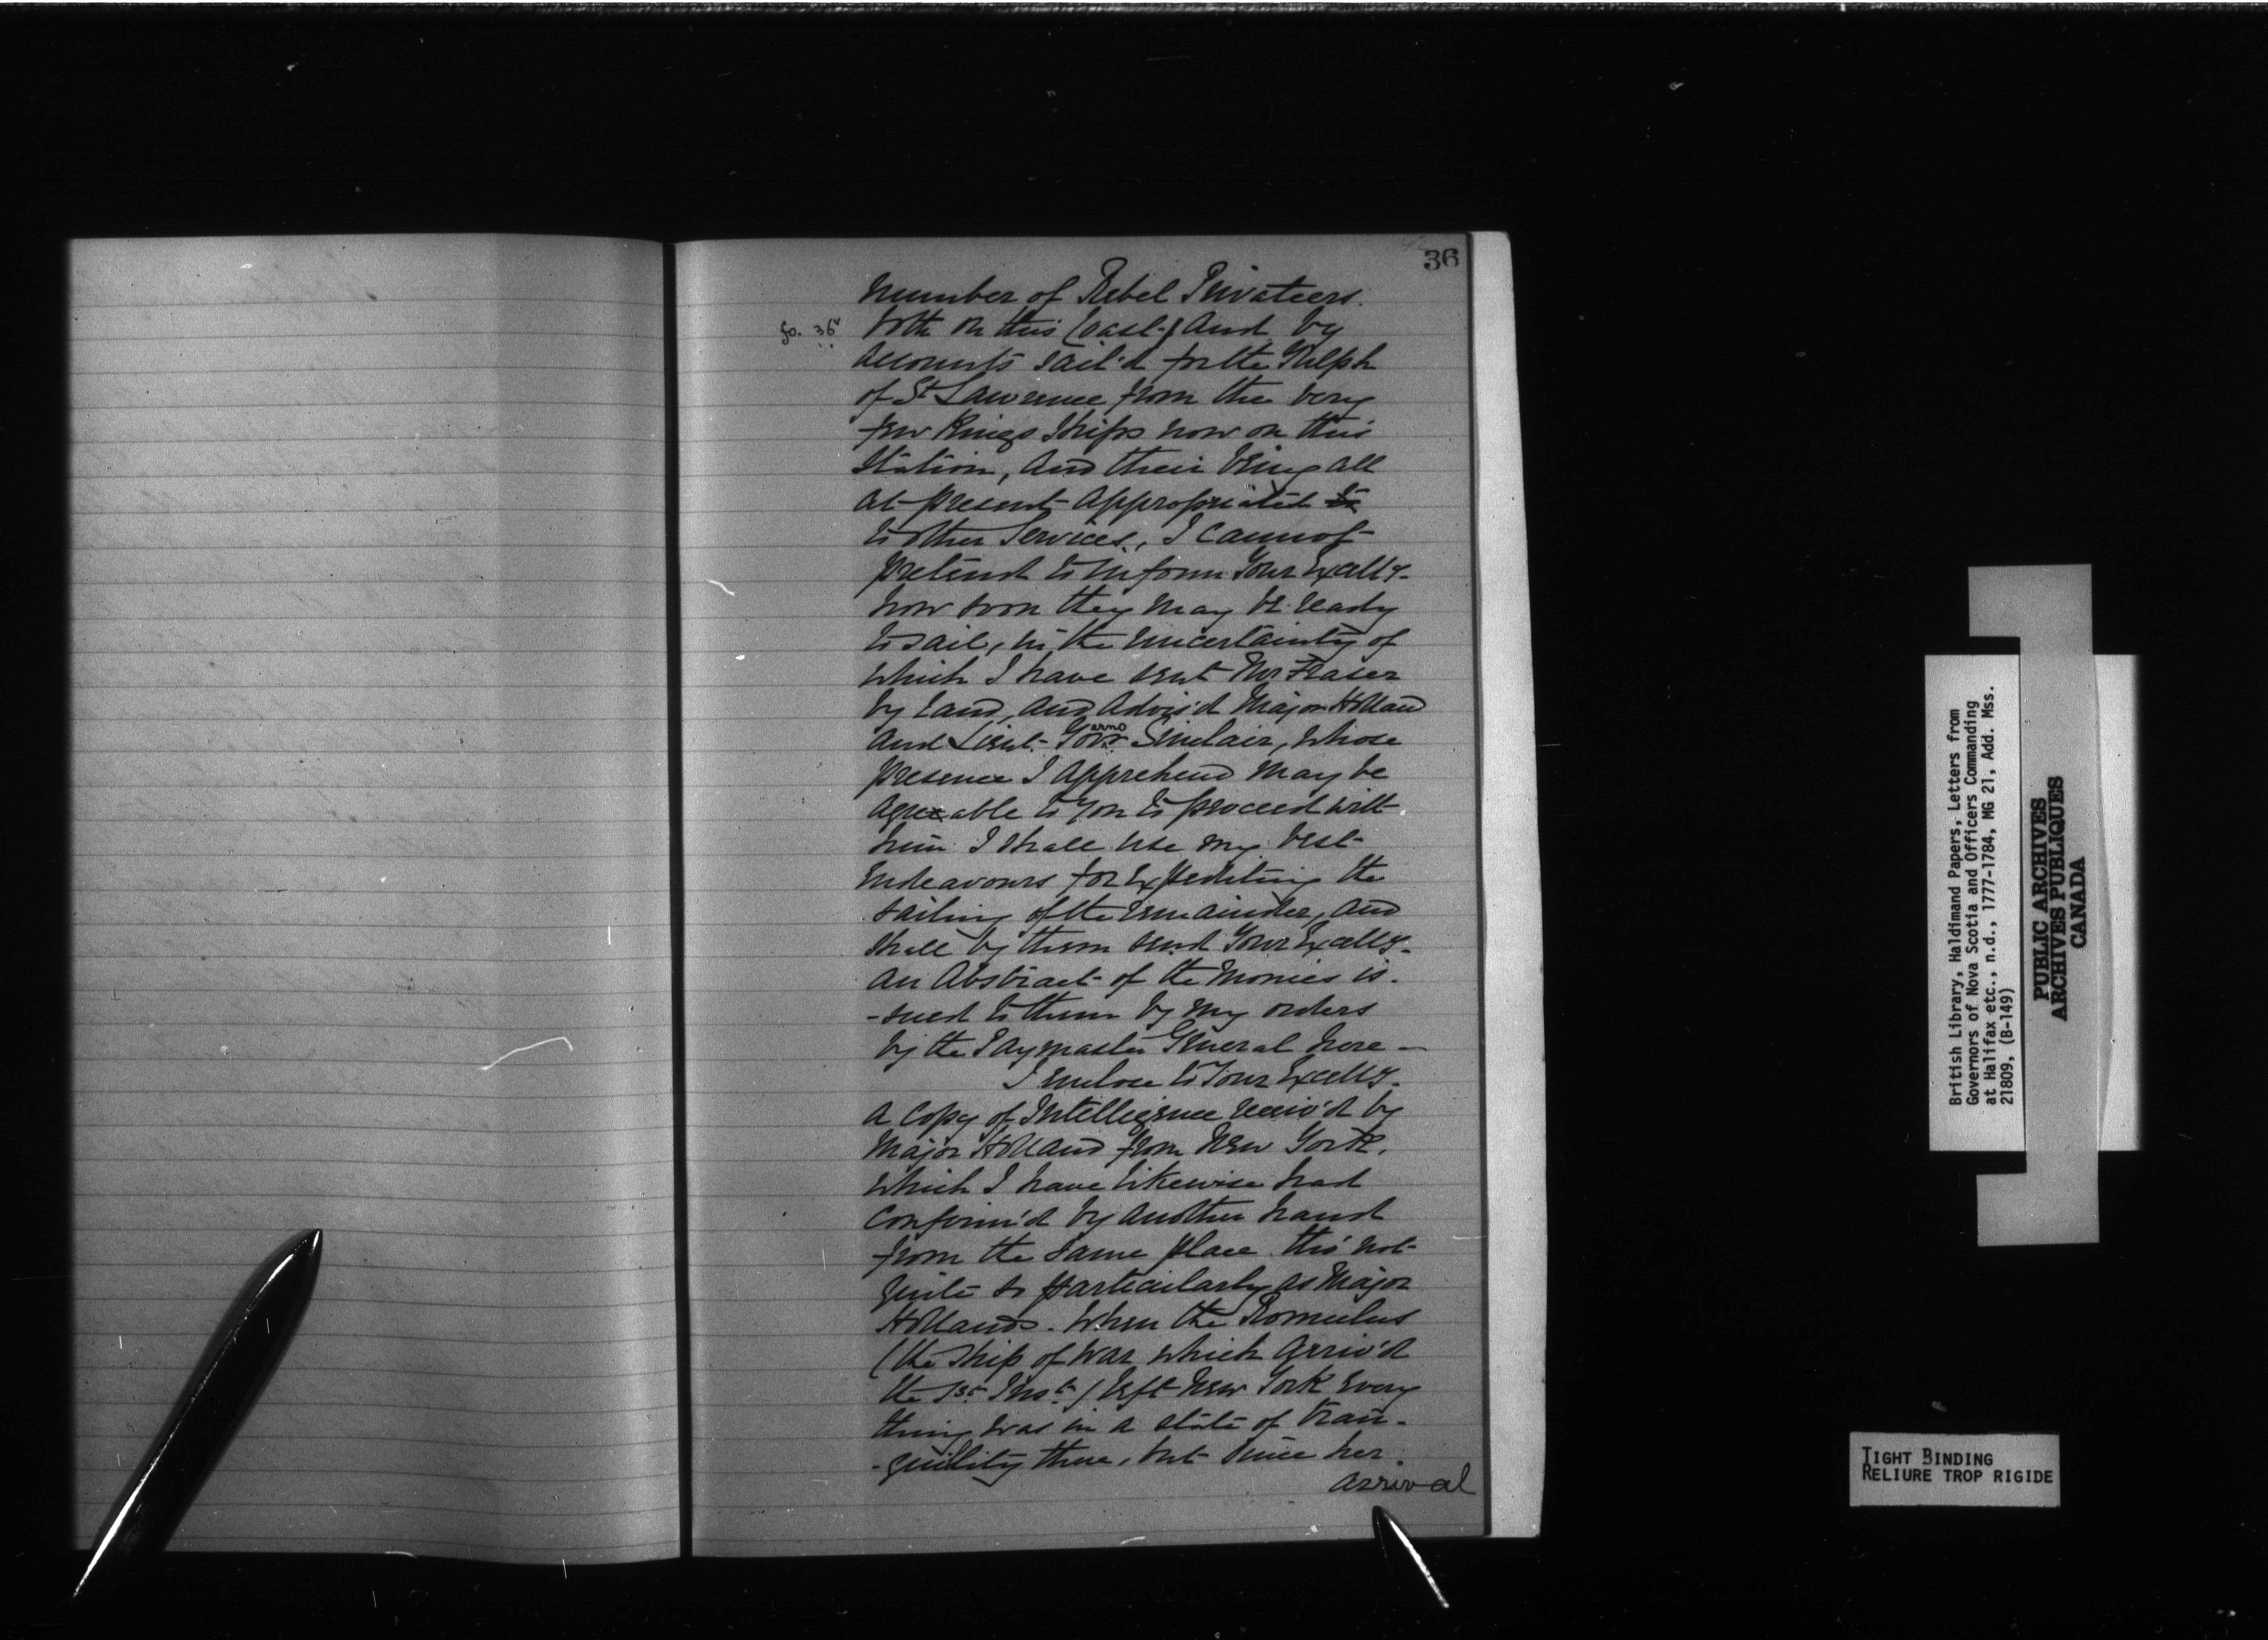 36
number of Rebel Privateers
fo. 36v both on this Coast, and by
accounts sail'd for the Gulph
of St Lawrence from the very
few Kings Ships now on this
Station, and their being all
at present appropriated to
to other Services, I cannot
pretend to inform Your Excelly.
how soon they may be ready
to sail, in the uncertainty of
which I have sent Mr Fraser
by Land, and advis'd Major Holland
and Lieut. Governor Sinclair, whose
presence I apprehend may be
agreeable to you to proceed with
him I shall use my best
Endeavours for Expediting the
sailing of the remainder, and
shall by them send Your Excelly.
an Abstract of the Monies is-
-sued to them by my orders
by the Paymaster General here —
I enclose to Your Excelly.
a Copy of Intelligence receiv'd by
Major Holland from New York,
which I have likewise had
confirm'd by another hand
from the same place tho' not
quite so particularly as Major
Hollands. When the Romulus
(the Ship of War which arriv'd
the 1st Inst.) left New York every
thing was in a state of tran-
-quility there, but since her
arrival
British Library, Haldimand Papers, Letters from
Governors of Nova Scotia and Officers Commanding
at Halifax etc., n.d., 1777-1784, MG 21, Add. Mss.
21809, (B-149)
PUBLIC ARCHIVES
ARCHIVES PUBLIQUES
CANADA
TIGHT BINDING
RELIURE TROP RIGIDE